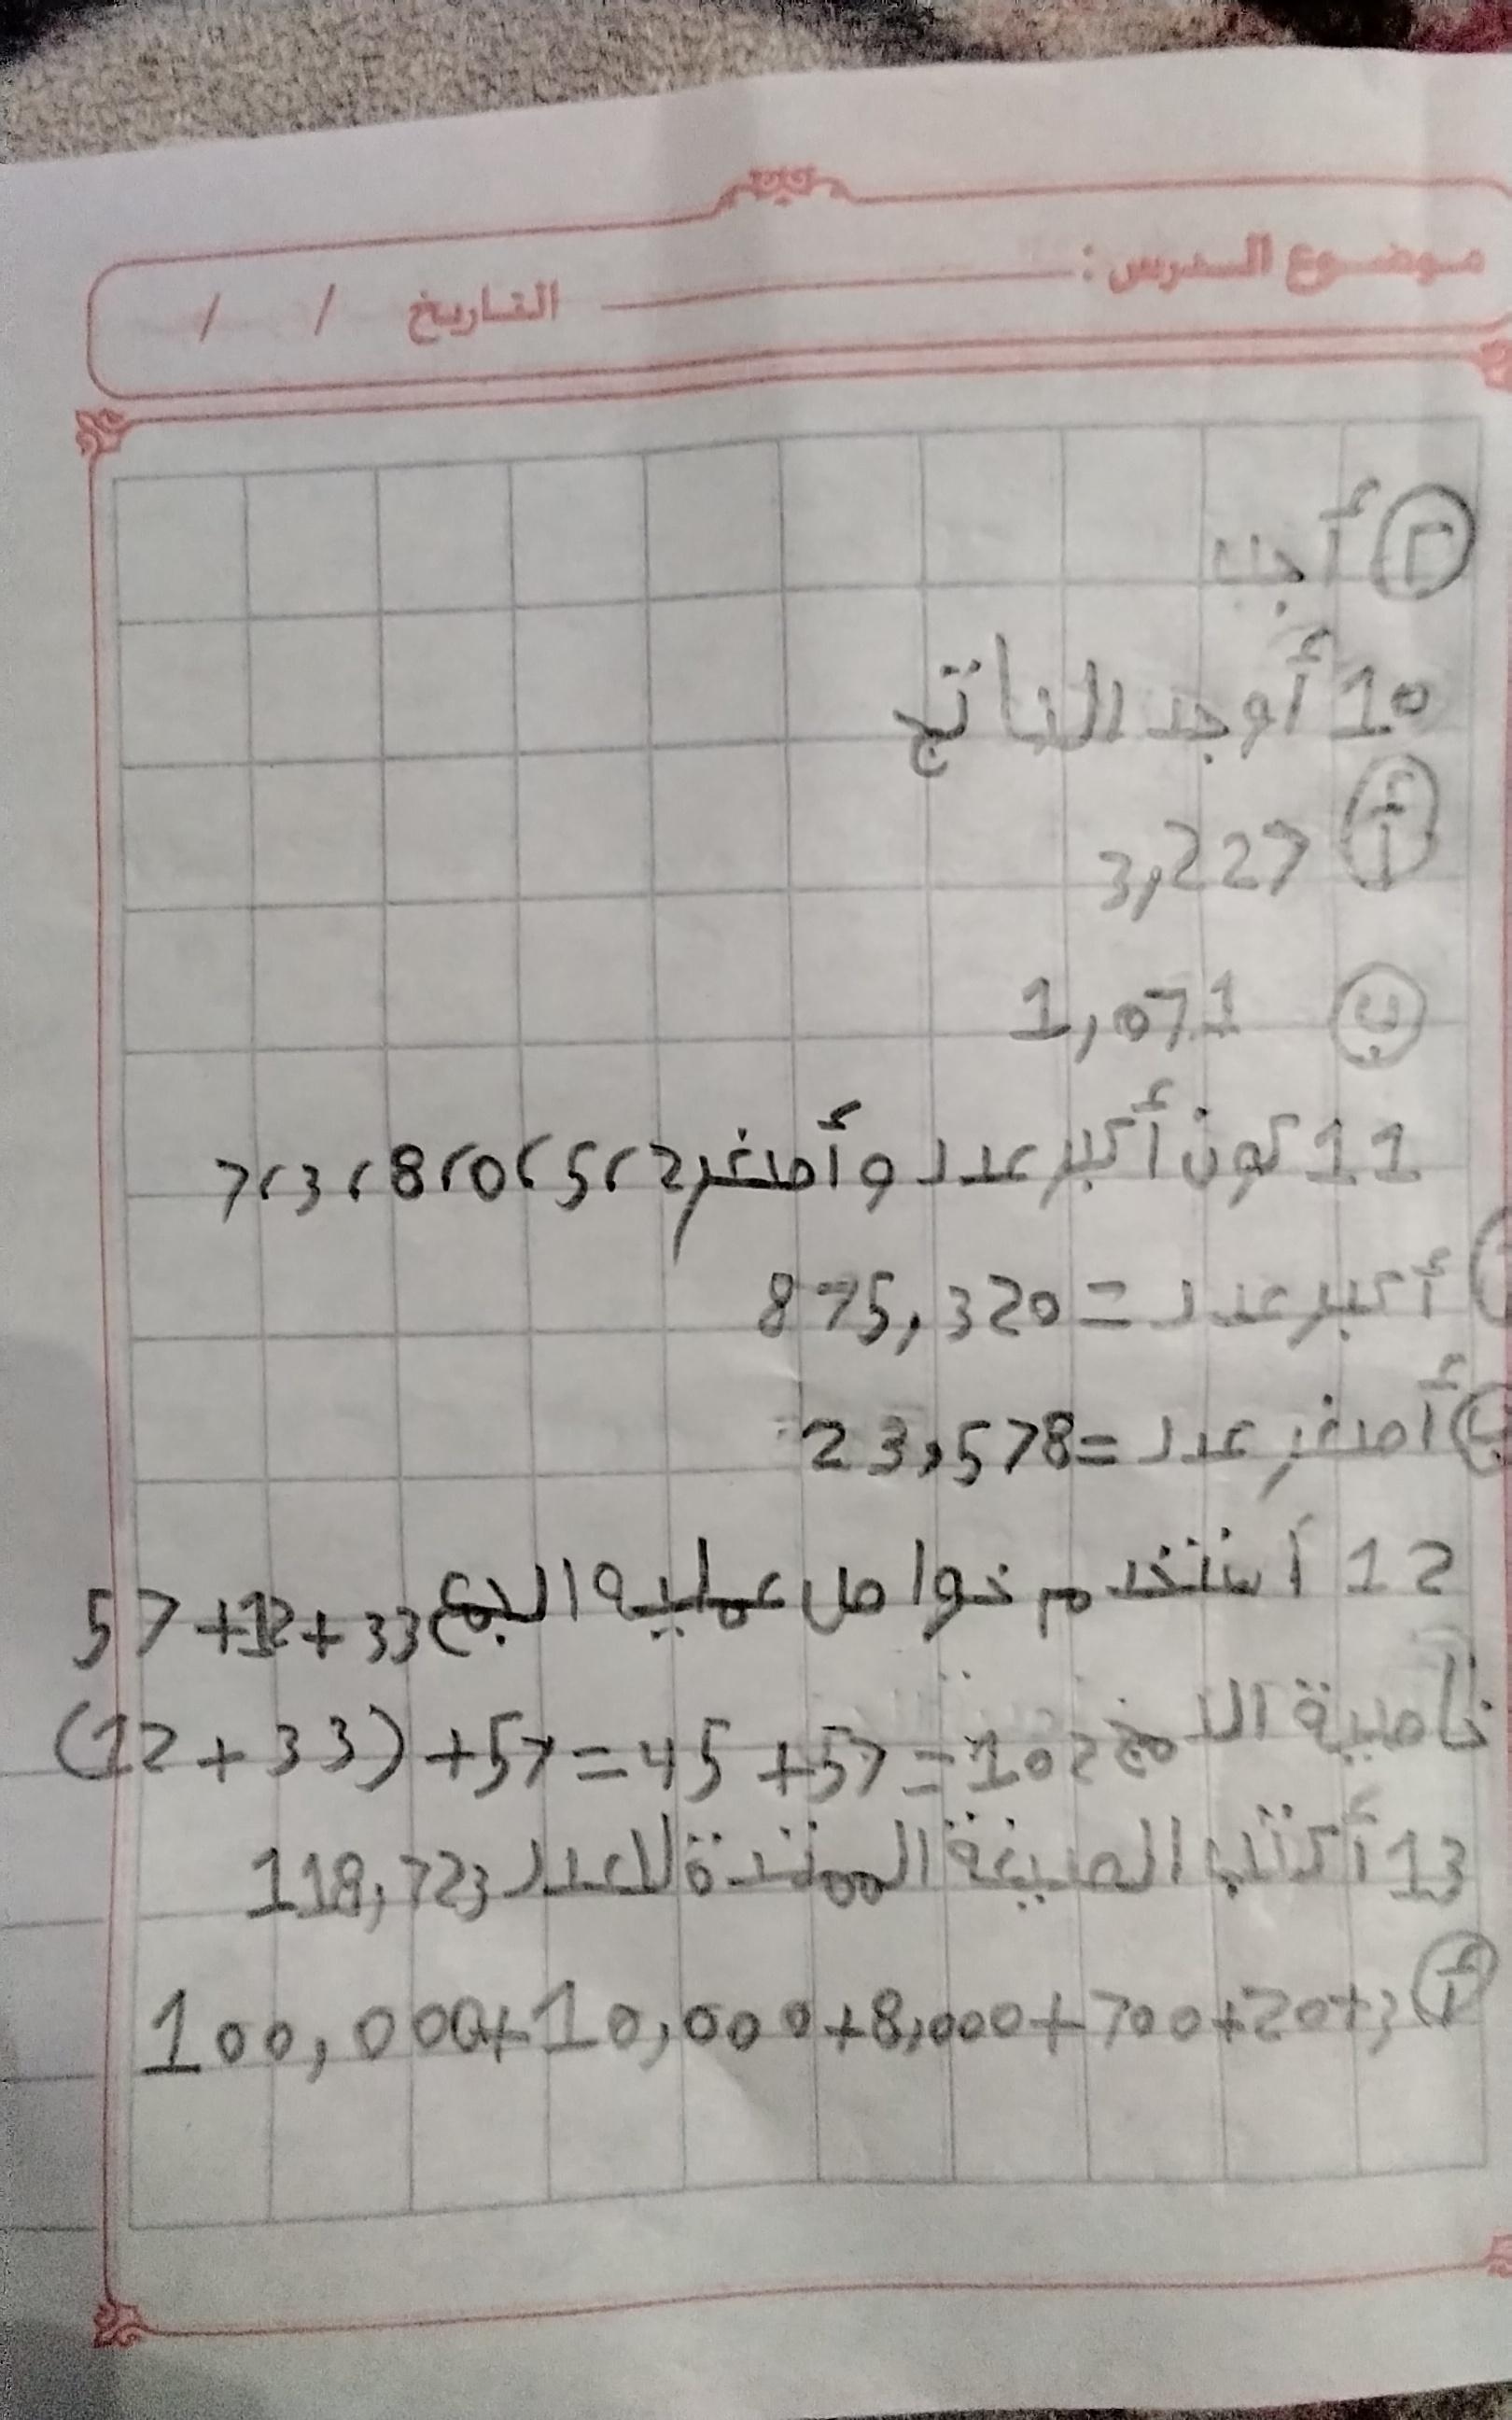 موضوع الدرس : التاريخ / /
٢ أجب
10 أوجد الناتج
أ 3,227
ب 1,071
11 كون أكبر عدد وأصغر 2، 5، 0، 8، 3، 7
أ أكبر عدد = 875,320
ب أصغر عدد = 23,578
12 أستخدم خواص عملية الجمع 33 + 12 + 57
خاصية الدمج (12 + 33) + 57 = 45 + 57 = 102
13 أكتب الصيغة الممتدة للعدد 118,723
أ 100,000 + 10,000 + 8,000 + 700 + 20 + 3